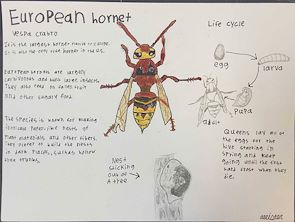 European hornet
Vespa crabro
It is the largest hornet native to Europe.
It is also the only true hornet in the US.
European hornets are largely
carnivores and hunt large insects.
They also feed on fallen fruit
and other sugary food.
The species is known for making
paper-like nests of
plant materials and other fibers.
They prefer to build the nests
in dark places, such as hollow
tree trunks.
Nest
sticking
out of
a tree
Life cycle
egg
larva
pupa
adult
Queens lay most
of the eggs for the
hive starting in
spring and keep
going until the first
hard frost when they
die.